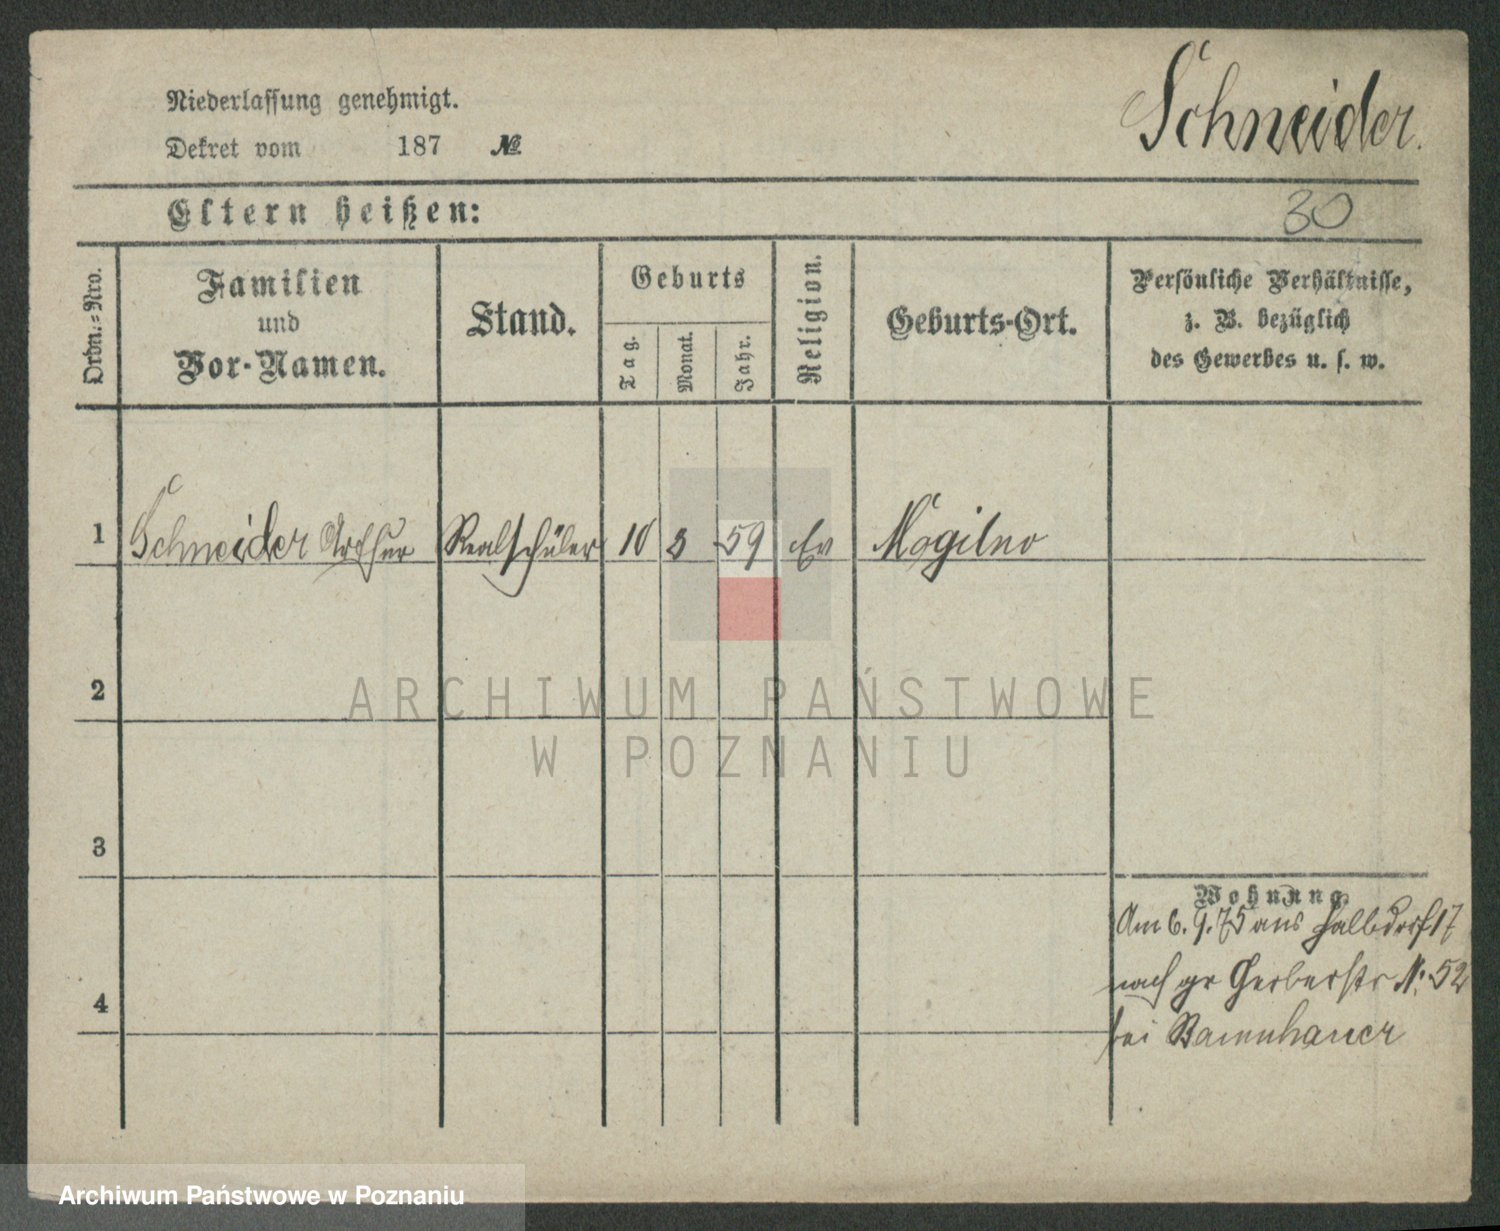 Schneider.
Niederlassung genehmigt.
Dekret vom 187 №
Eltern heißen:
30
Ordn.=Nro.
Familien
und
Vor-Namen.
Stand.
Geburts
Tag.
Monat.
Jahr.
Religion.
Geburts-Ort.
Persönliche Verhältnisse,
z. B. bezüglich
des Gewerbes u. s. w.
1 Schneider Arthur Realschüler 10 3 59 Ev Mogilno
2
3
4
Wohnung
Am 6. 9. 75 aus Halbdorf 17
nach gr Gerberstr N. 52
bei
ARCHIWUM PAŃSTWOWE
W POZNANIU
Archiwum Państwowe w Poznaniu